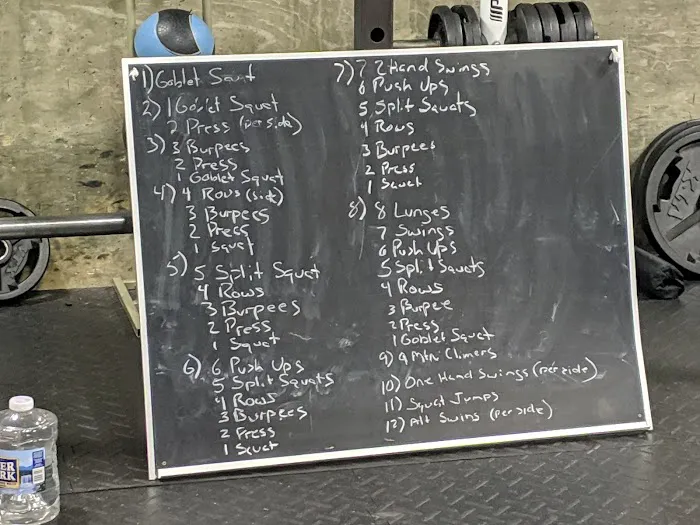 1) Goblet Squat
2) 1 Goblet Squat
2 Press (per side)
3) 3 Burpees
2 Press
1 Goblet Squat
4) 4 Rows (side)
3 Burpees
2 Press
1 Squat
5) 5 Split Squat
4 Rows
3 Burpees
2 Press
1 Squat
6) 6 Push Ups
5 Split Squats
4 Rows
3 Burpees
2 Press
1 Squat
7) 7 2 Hand Swings
6 Push Ups
5 Split Squats
4 Rows
3 Burpees
2 Press
1 Squat
8) 8 Lunges
7 Swings
6 Push Ups
5 Split Squats
4 Rows
3 Burpee
2 Press
1 Goblet Squat
9) 9 Mtn Climers
10) One Hand Swings (per side)
11) Squat Jumps
12) Alt Swins (per side)